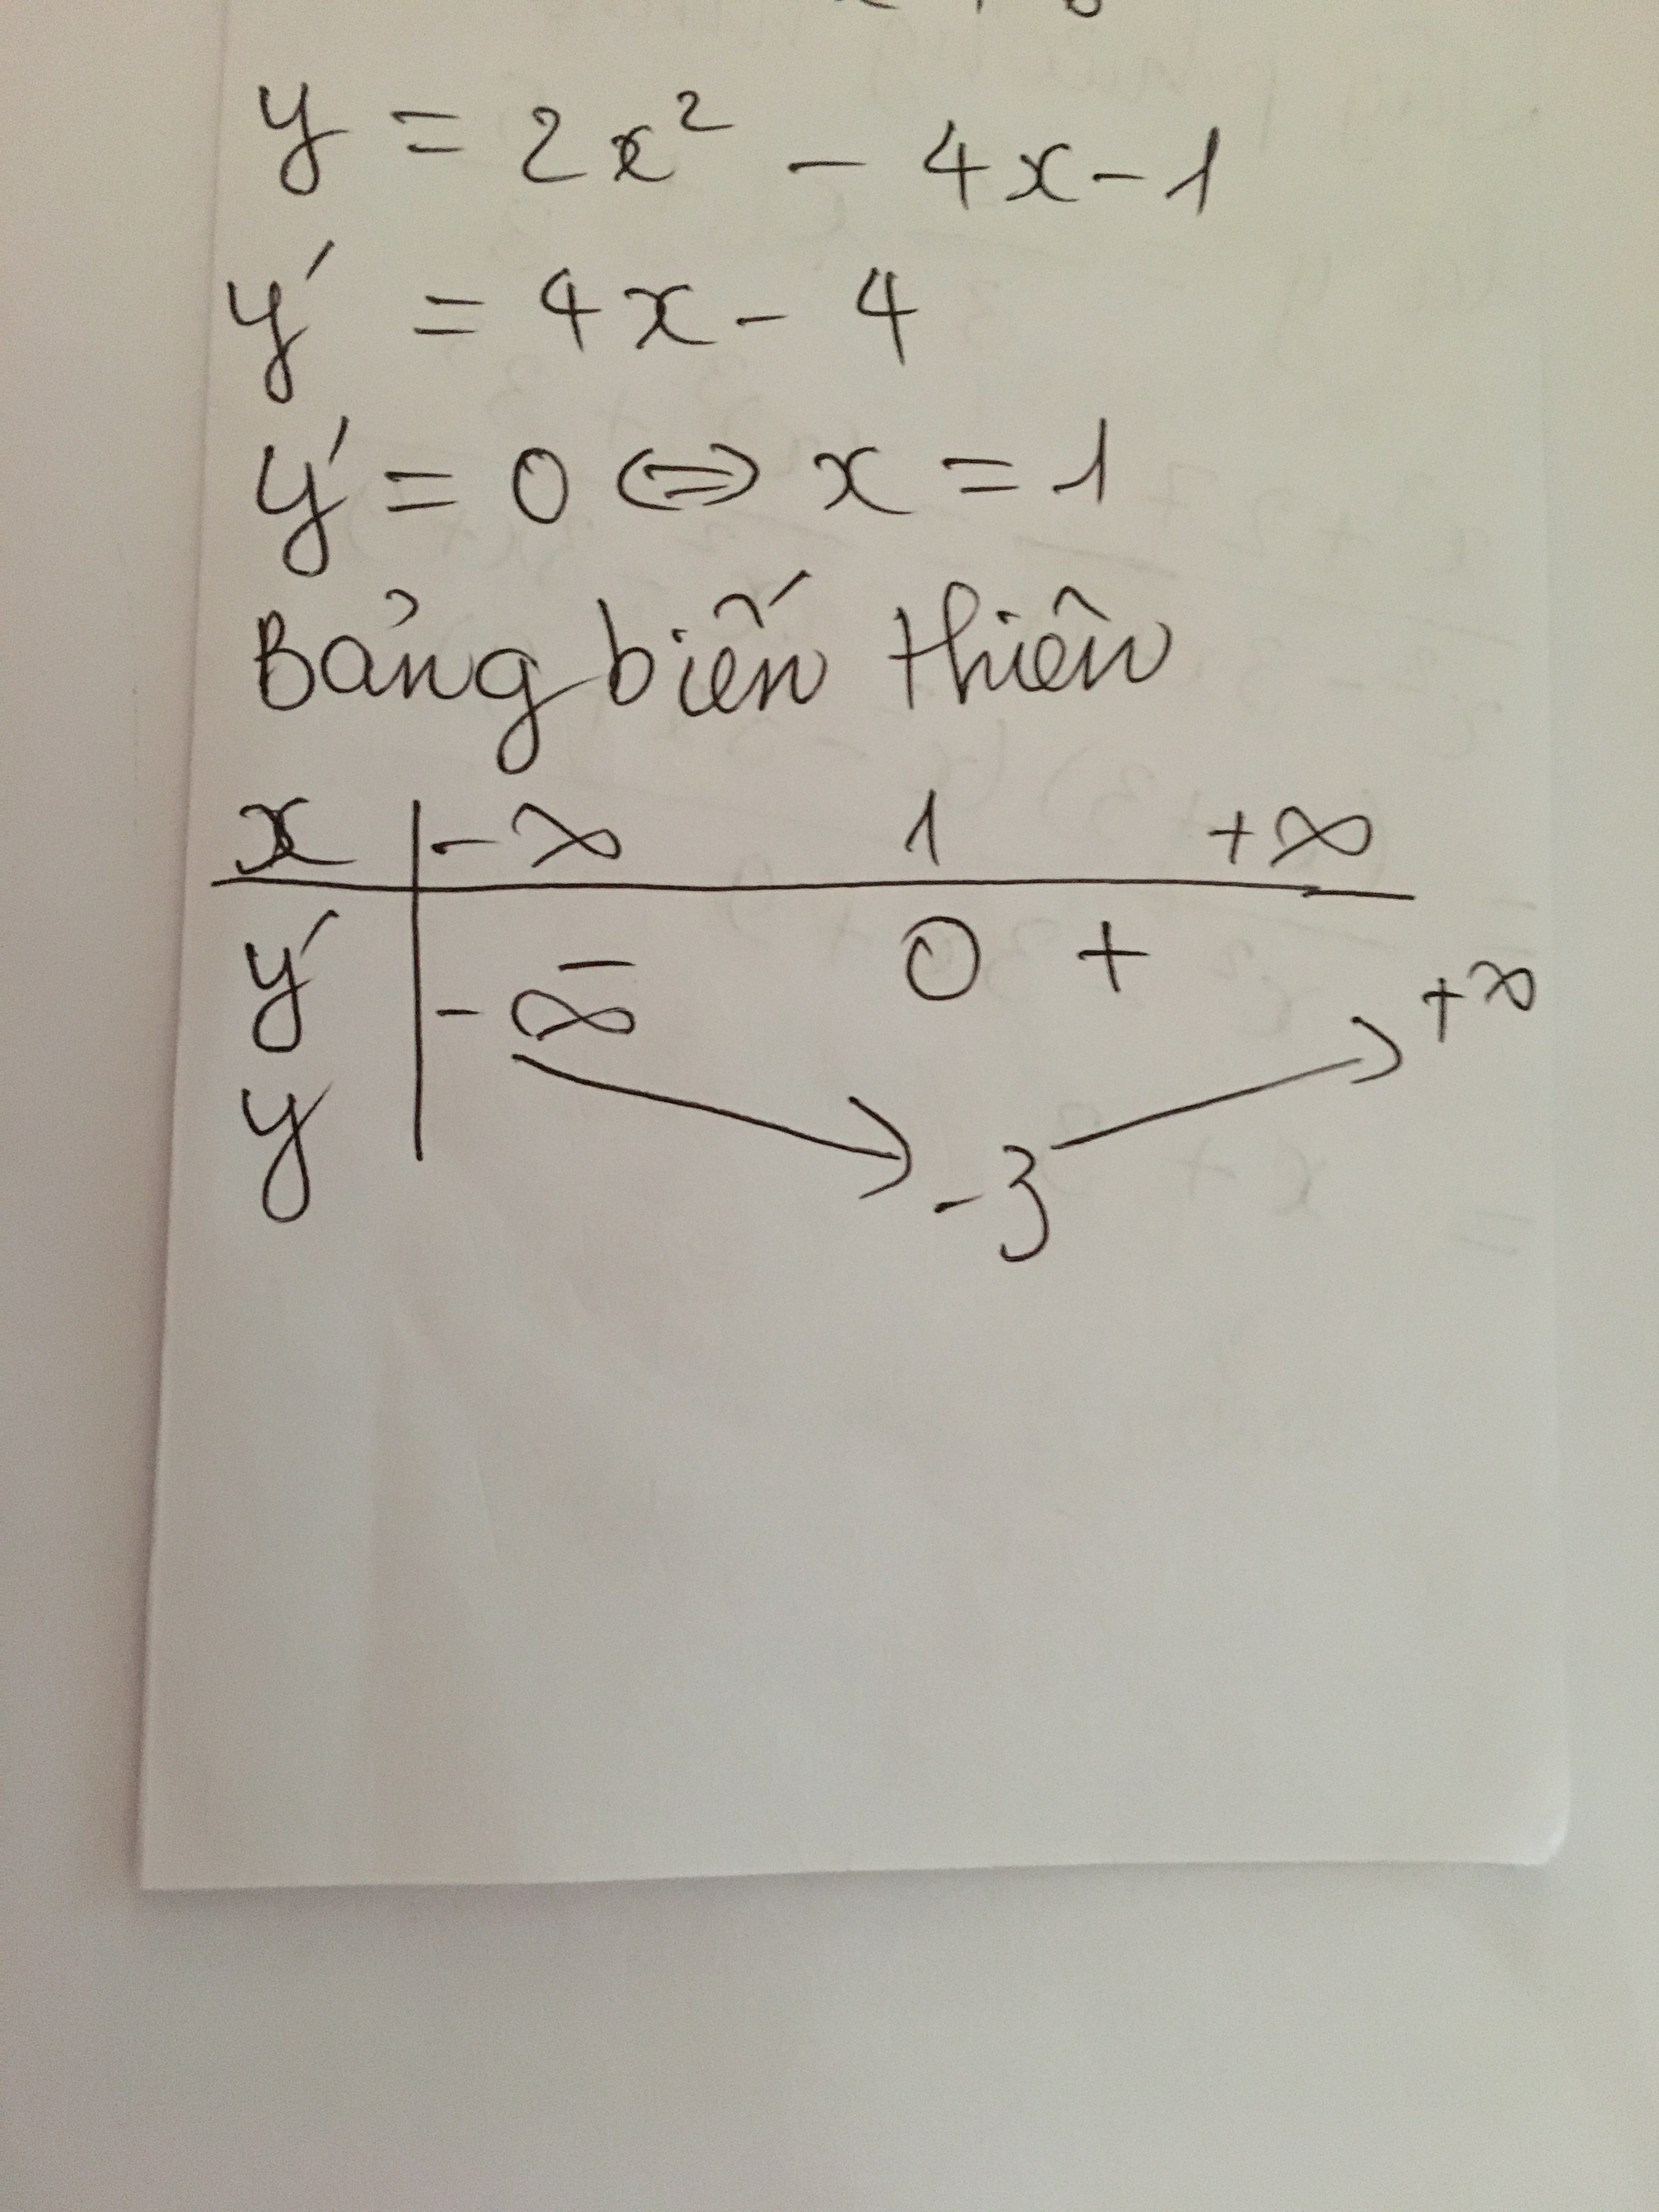 y = 2x² - 4x - 1
y' = 4x - 4
y' = 0 <=> x = 1
Bảng biến thiên
x | -∞ 1 +∞
y' | - 0 +
y | -∞ -3 +∞